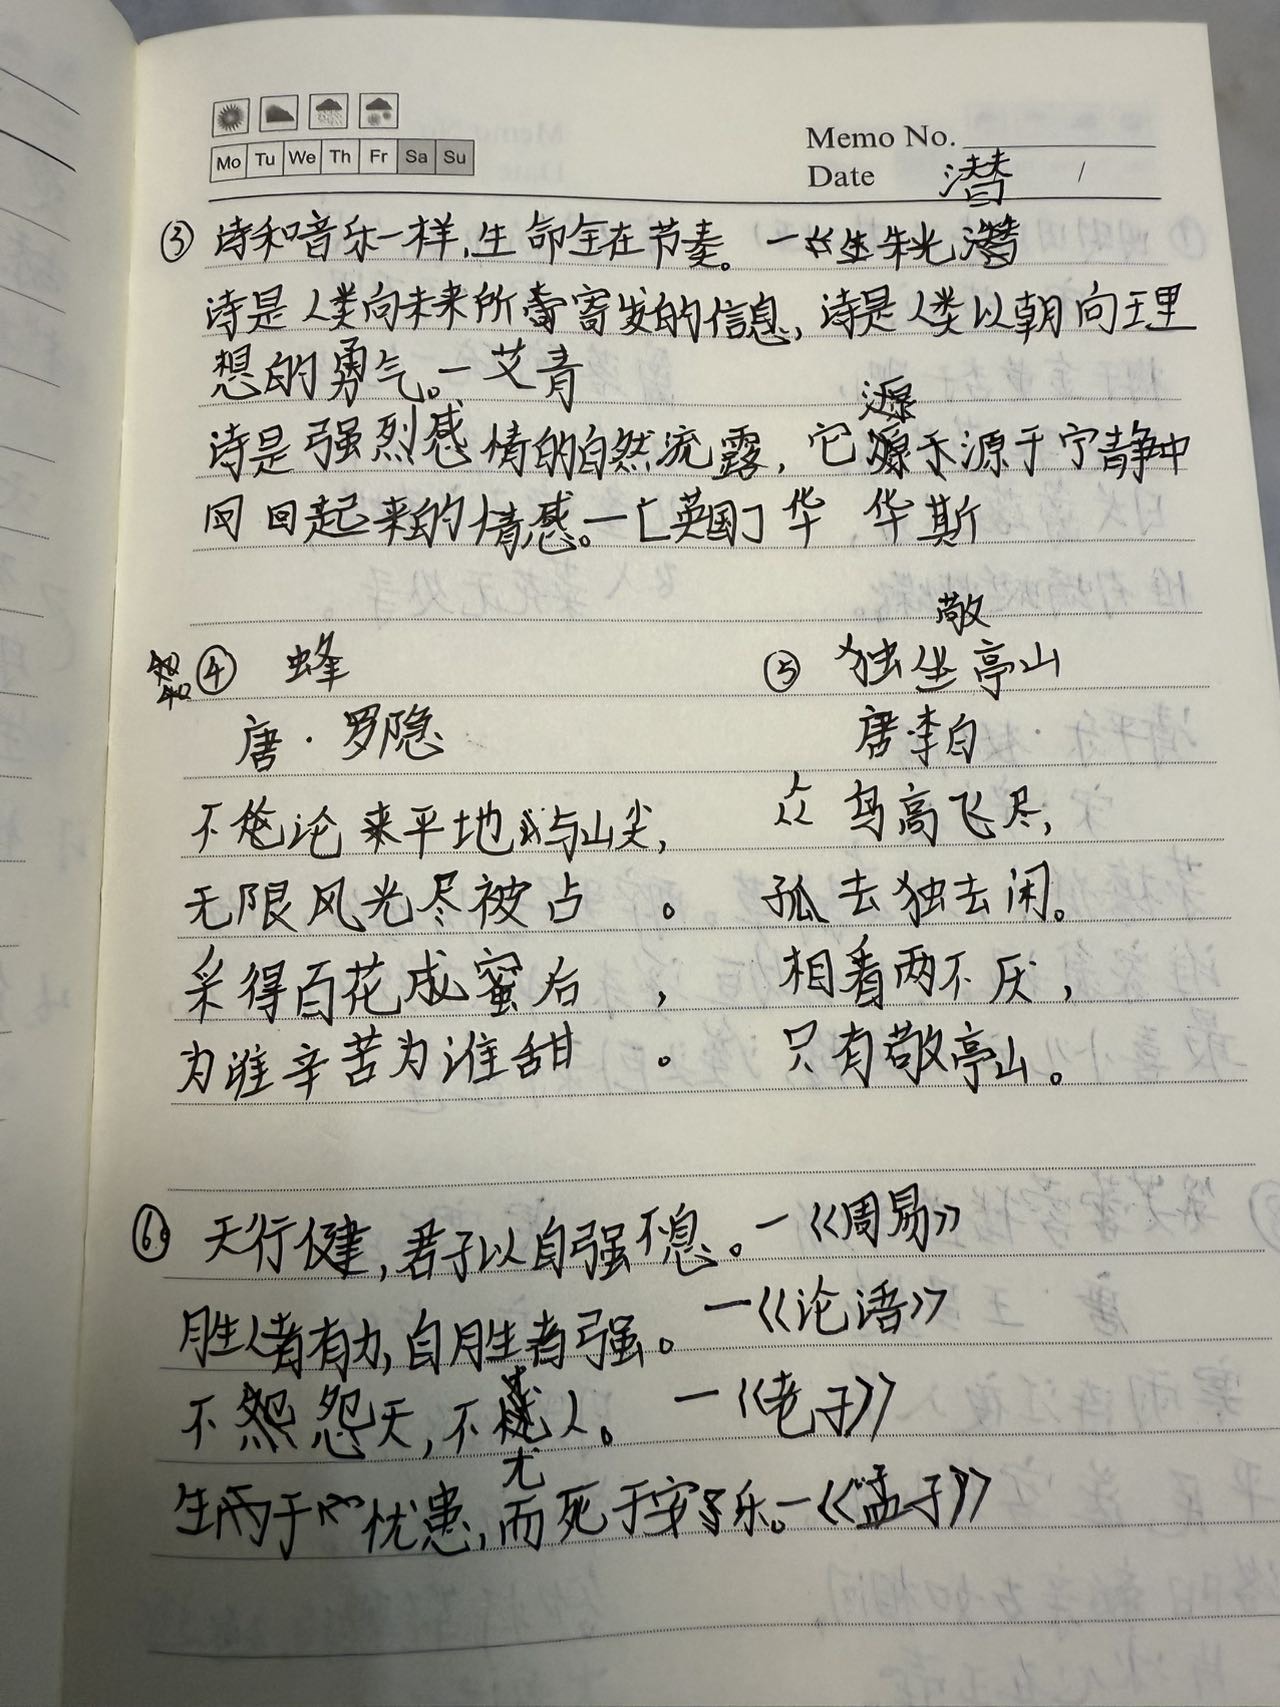 Mo Tu We Th Fr Sa Su
Memo No.
Date 潜 /
③ 诗和音乐一样,生命全在节奏。一《 朱光潜
诗是人类向未来所寄发的信息,诗是人类以朝向理
想的勇气。一艾青
诗是强烈感情的自然流露,它源于宁静中
回回起来的情感。一[英国]华 华斯
④ 蜂
唐·罗隐
不论来平地与山尖,
无限风光尽被占。
采得百花成蜜后,
为谁辛苦为谁甜。
敬
⑤ 独坐亭山
唐·李白
众鸟高飞尽,
孤去独去闲。
相看两不厌,
只有敬亭山。
⑥ 天行健,君子以自强不息。一《周易》
胜人者有力,自胜者强。一《论语》
不怨天,不尤人。一《老子》
生而于忧患,而死于安乐。一《孟子》